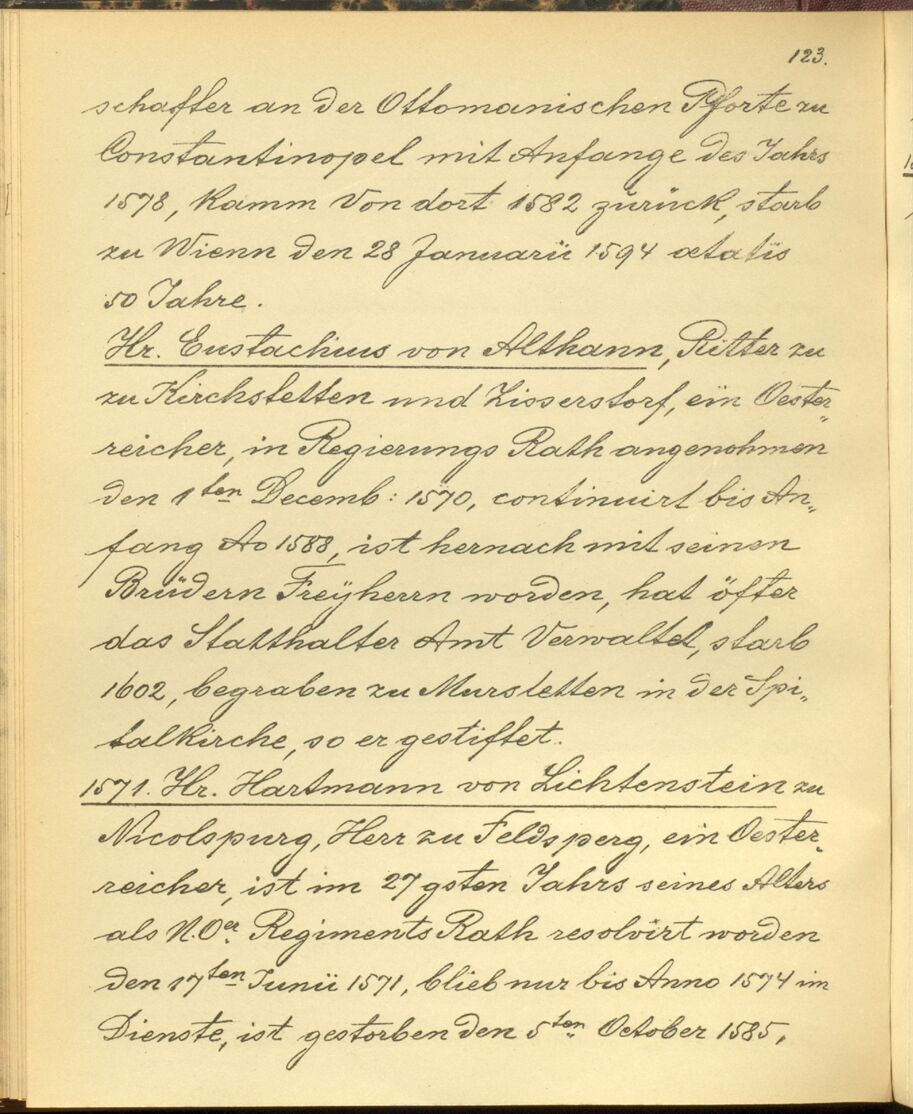 123.
schaffer an der Ottomanischen Pforte zu
Constantinopel mit Anfange des Jahrs
1578, kamm von dort 1582 zurück, starb
zu Wienn den 28 Januarii 1594 ætatis
50 Jahre.
Hr. Eustachius von Althann, Ritter zu
zu Kirchstetten und Zisserstorf, ein Oester„
reicher, in Regierungs Rath angenohmen
den 1ten Decemb: 1570, continuirt bis An„
fang Ao 1588, ist hernach mit seinen
Brüdern Freÿherrn worden, hat öfter
das Statthalter Amt Verwaltet, starb
1602, begraben zu Murstetten in der Spi„
talkirche, so er gestiftet.
1571. Hr. Hartmann von Lichtenstein zu
Nicolspurg, Herr zu Feldsperg, ein Oester„
reicher, ist im 27gsten Jahrs seines Alters
als N.Oer. Regiments Rath resolvirt worden
den 17ten Junii 1571, blieb nur bis Anno 1574 im
Dienste, ist gestorben den 5ten October 1585,